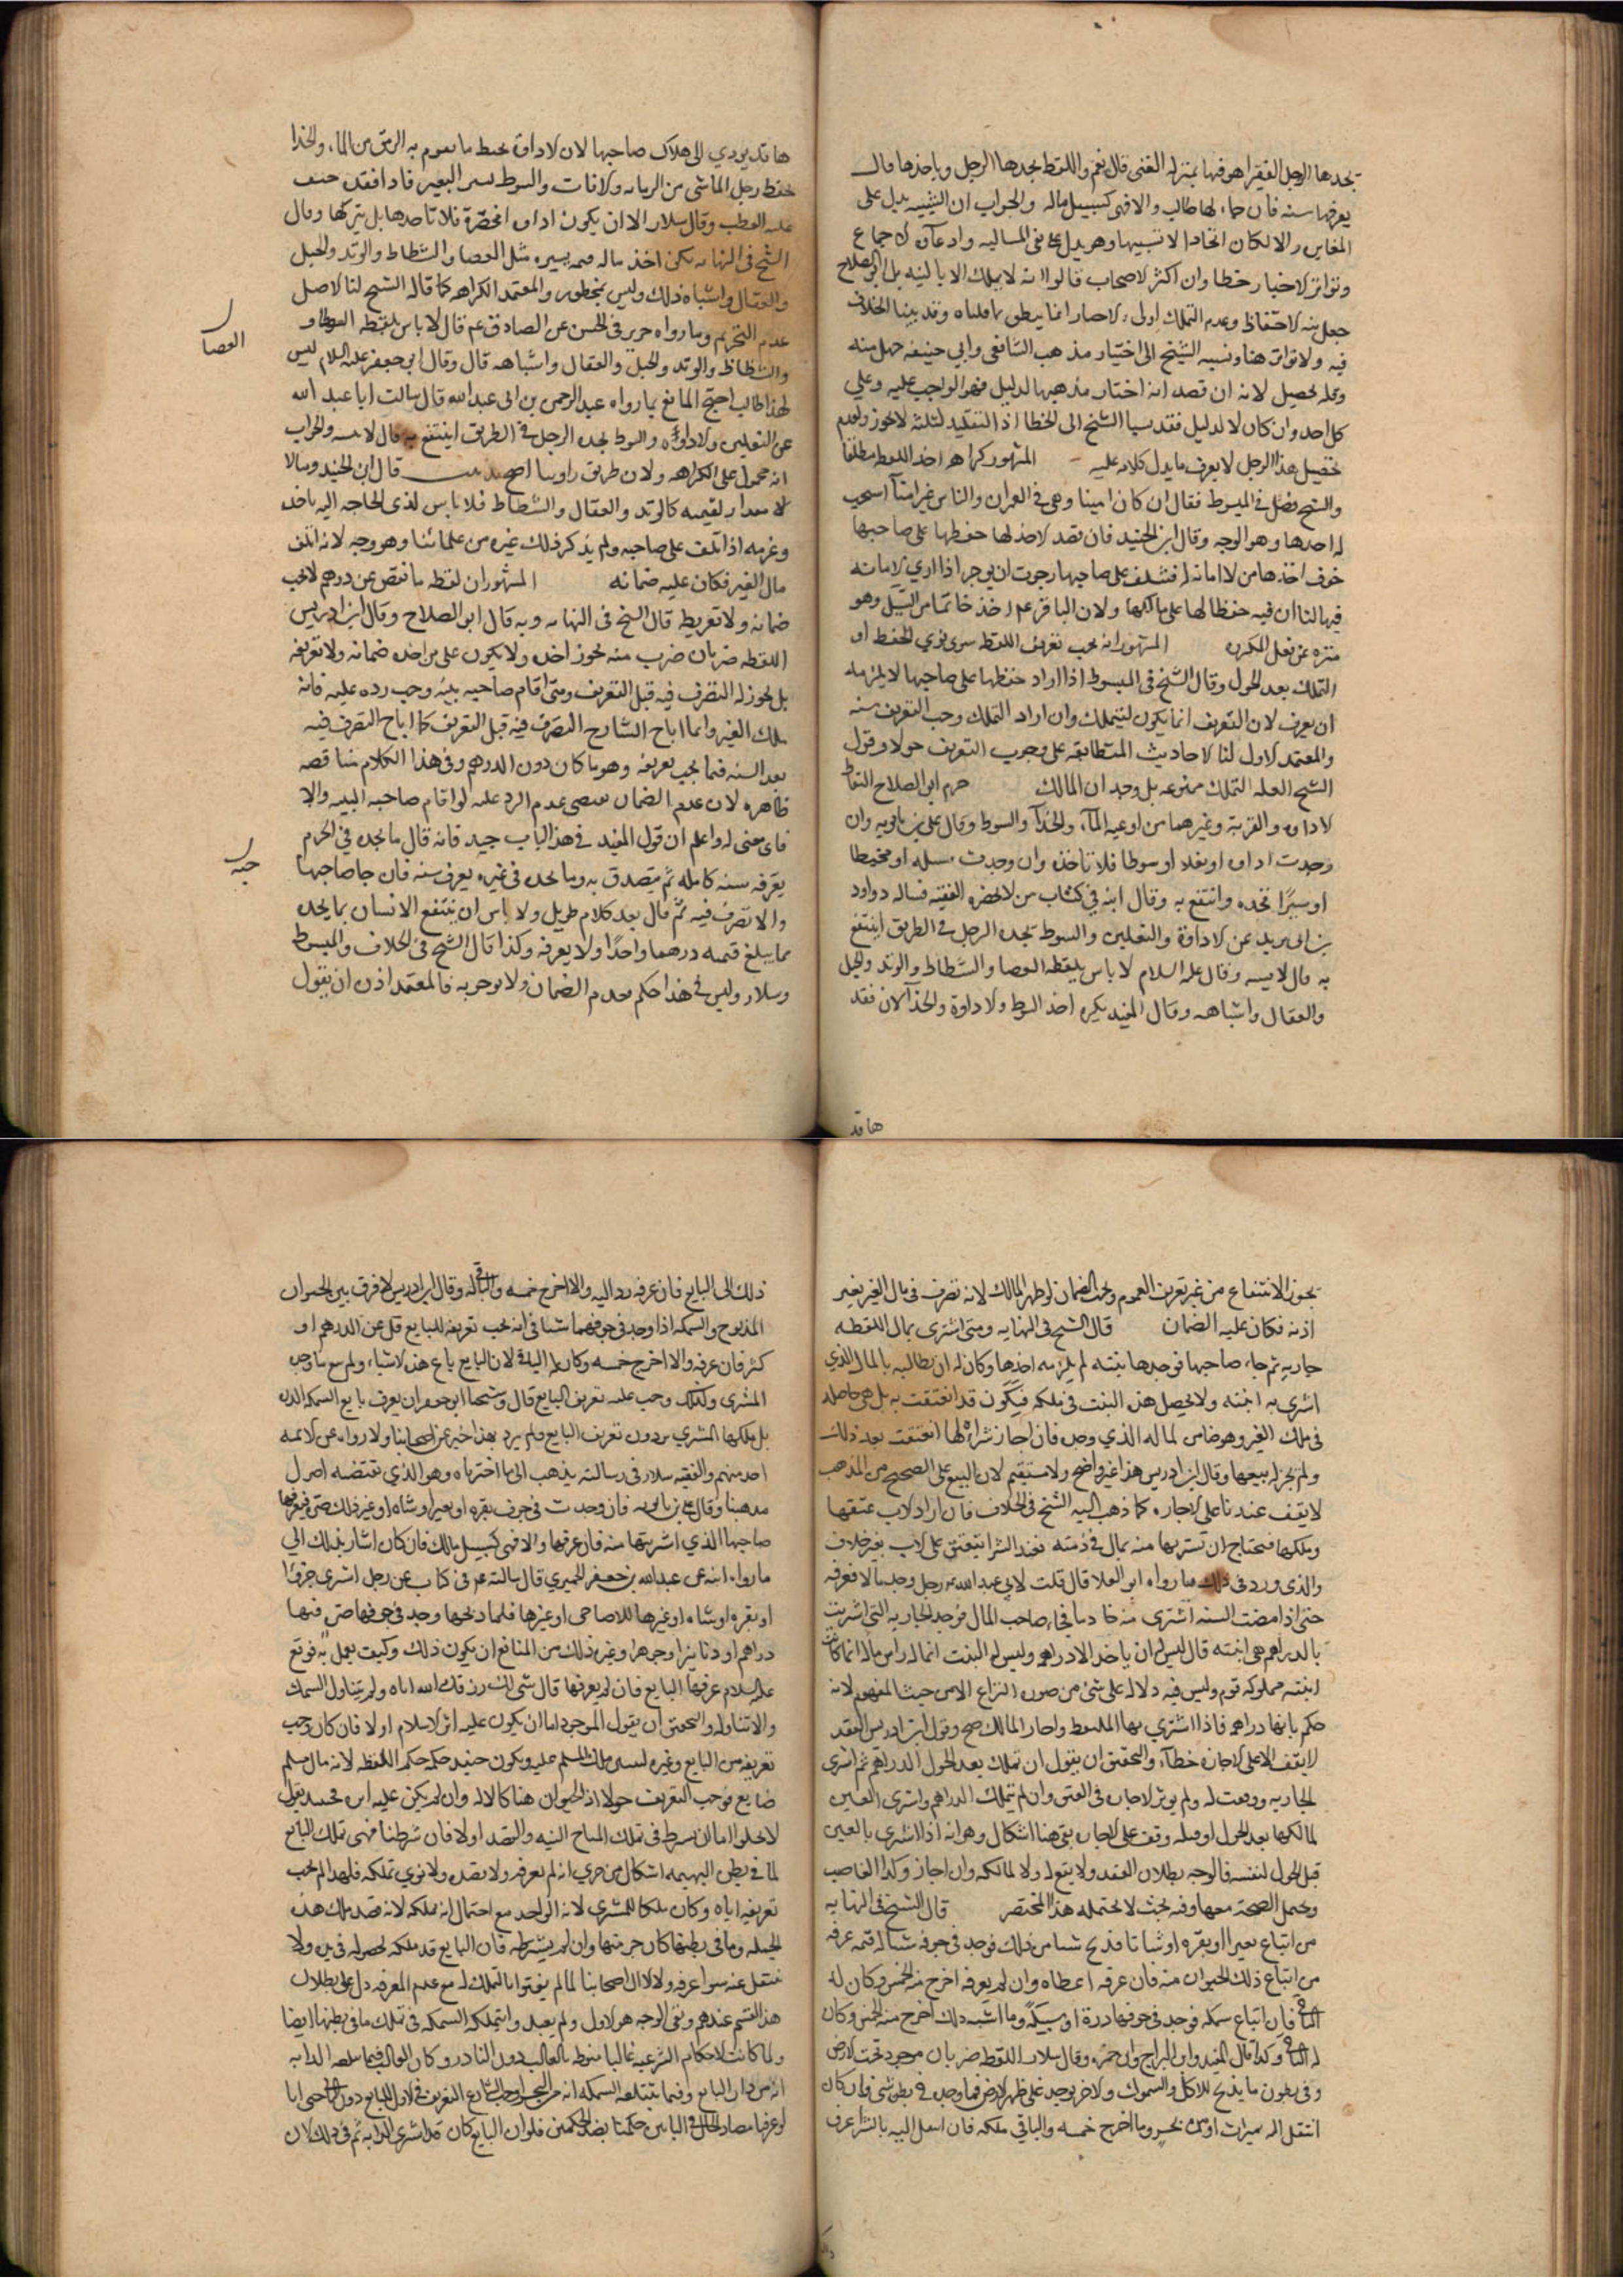 يجدها الرجل الفقير اهو فيها بمنزلة الغنى قال نعم واللقطه يجدها الرجل وياخذها قال
يعرفها سنه فان جاء لها طالب والا فهى كسبيل ماله والجواب ان التشبيه يدل على
المغايره والا لكان اتحادا لا تشبيها وهو يدل على نفى المساله وادعاؤه الاجماع
وتواتر الاخبار خطا وان اكثر الاصحاب قالوا انه لا يملك الا بالنيه بل ابن الصلاح
جعل نيه الاحتفاظ وعدم التملك اولى والاخبار انما ينطق بما قلناه وقد بينا الخلاف
فيه ولا تواتر هنا ونسبه الشيخ الى اختيار مذهب الشافعى وابي حنيفه جهل منه
وقله تحصيل لانه ان قصد انه اختار مذهبهما لدليل فهو الواجب عليه وعلى
كل احد وان كان لا لدليل فقد نسب الشيخ الى الخطا اذ التقليد لمثله لا يجوز ولعدم
تحصيل هذا الرجل لا يعرف ما يدل كلامه عليه المشهور كراهه اخذ اللقطه مطلقا
والشيخ فصل في المبسوط فقال ان كان امينا وهى في العمران والناس غير امناء استحب
له اخذها وهو الوجه وقال ابن الجنيد فان قصد الاخذ لها حفظها على صاحبها
خوف اخذها من لا امانه له فتتلف على صاحبها رجوت ان يوجر اذا ادى الامانه
فيها لنا ان فيه حفظا لها على مالكها ولان الباقر عم اخذ خاتما من السبيل وهو
منزه عن فعل المكروه المشهور انه يجب تعريف اللقطه سوى نوى الحفظ او
التملك بعد الحول وقال الشيخ فى المبسوط اذا اراد حفظها على صاحبها لا يلزمه
ان يعرف لان التعريف انما يكون للتملك وان اراد التملك وجب التعريف سنه
والمعتمد الاول لنا الاحاديث المتطابقه على وجوب التعريف حولا وقول
الشيخ العله التملك ممنوعه بل وجدان المالك حرم ابو الصلاح التقاط
الاداوه والقربة وغيرهما من اوعيه الماء والحذاء والسوط وقال على بن بابويه وان
وجدت اداوه او نعلا او سوطا فلا تاخذه وان وجدت مسله او مخيطا
او سيرا فخذه وانتفع به وقال ابنه في كتاب من لا يحضره الفقيه فساله داود
بن ابى يزيد عن الاداوة والنعلين والسوط يجده الرجل فى الطريق اينتفع
به قال لا يمسه وقال عليه السلام لا باس بلقطه العصا والشظاظ والوتد والحبل
والعقال واشباهه وقال المفيد يكره اخذ السوط والاداوة والحذاء لان فقد
ها قد
ها قد يودي الى هلاك صاحبها لان الاداوة يحفظ ما يقوم به الرمق من الماء والحذا
يحفظ رجل الماشى من الزمانه والافات والسوط يسير البعير فاذا فقده خيف
عليه العطب وقال سلار الا ان يكون اداوه او مخصرة فلا تاخذها بل يتركها وقال
الشيخ فى النهايه يكره اخذ ماله قيمه يسيره مثل العصا والشظاظ والوتد والحبل
والعقال واشباه ذلك وليس بمحظور والمعتمد الكراهه كما قاله الشيخ لنا الاصل
عدم التحريم وما رواه حريز فى الحسن عن الصادق عم قال لا باس بلقطه السوط و
العصا
والشظاظ والوتد والحبل والعقال واشباهه قال وقال ابو جعفر عليه السلام ليس
لهذا طالب احتج المانع بما رواه عبد الرحمن بن ابى عبد الله قال سالت ابا عبد الله
عن النعلين والاداوه والسوط يجده الرجل فى الطريق اينتفع به قال لا يمسه والجواب
انه محمول على الكراهه ولان طريق روايتنا اصح قال ابن الجنيد وما لا
لا مقدار لقيمته كالوتد والعقال والشظاظ فلا باس لذى الحاجه اليه ياخذه
وغرمه اذا تلف على صاحبه ولم يذكر ذلك غيره من علمائنا وهو وجه لانه اتلف
مال الغير فكان عليه ضمانه المشهور ان لقطه ما نقص عن درهم لا يجب
ضمانه ولا تعريفه قال الشيخ فى النهايه وبه قال ابو الصلاح وقال ابن ادريس
اللقطه ضربان ضرب منه يجوز اخذه ولا يكون على من اخذه ضمانه ولا تعريفه
بل يجوز له التصرف فيه قبل التعريف ومتى اقام صاحبه بينه وجب رده عليه فانه
ملك الغير وانما اباح الشارع التصرف فيه قبل التعريف كما اباح التصرف فيه
بعد السنه فيما يجب تعريفه وهو ما كان دون الدرهم وفى هذا الكلام مناقضه
ظاهره لان عدم الضمان يقتضى عدم الرد عليه لو اقام صاحبه البينه والا
فاى معنى له واعلم ان قول المفيد فى هذا الباب جيد فانه قال ما يجده في الحرم
جيد
يعرفه سنه كامله ثم يتصدق به وما يجده فى غيره يعرف سنه فان جا صاحبها
والا تصرف فيه ثم قال بعد كلام طويل ولا باس ان ينتفع الانسان بما يجده
مما يبلغ قيمته درهما واحدا ولا يعرفه وكذا قال الشيخ فى الخلاف والمبسوط
وسلار وليس فى هذا حكم بعدم الضمان ولا بوجوبه فالمعتمد اذن ان يقول
يجوز الانتفاع من غير تعريف للعموم ويجب الضمان لو ظهر المالك لانه تصرف فى مال الغير بغير
اذنه فكان عليه الضمان قال الشيخ فى النهايه ومتى اشترى بمال اللقطه
جاريه ثم جاء صاحبها فوجدها بنته لم يلزمه اخذها وكان له ان يطالبه بالمال الذي
اشترى به ابنته ولا يحصل هذه البنت فى ملكه فيكون قد انعتقت به بل هى حاصله
فى ملك الغير وهو ضامن لماله الذي وجده فان اجاز شراه لها انعتقت بعد ذلك
ولم يجز له بيعها وقال ابن ادريس هذا غير واضح ولا مستقيم لان البيع على الصحيح من المذهب
لا يقف عندنا على الاجازه كما ذهب اليه الشيخ فى الخلاف فان اراد الاب عتقها
وملكها فيحتاج ان يشتريها منه بمال فى ذمته فعند الشرا ينعتق على الاب بغير خلاف
والذى ورد فى ذلك ما رواه ابو العلا قال قلت لابي عبد الله عم رجل وجد مالا فعرفه
حتى اذا مضت السنه اشترى منه خادما فجاء صاحب المال فوجد الجاريه التى اشريت
بالدراهم هى ابنته قال ليس له ان ياخذ الا دراهمه وليس له البنت انما له راس ماله انما كانت
ابنته مملوكه قوم وليس فيه دلاله على شئ من صوره النزاع الا من حيث المفهوم لانه
حكم بانها دراهمه فاذا اشترى بها الملتقط واجاز المالك صح وقول ابن ادريس العقد
لا يقف الا على الاجازه خطاء والتحقيق ان يقول ان تملك بعد الحول الدراهم ثم اشترى
الجاريه وقعت له ولم يوثر الاجازه فى العتق وان لم يتملك الدراهم واشترى بالعين
لمالكها بعد الحول او قبله وقف على الاجازه بقى هنا اشكال وهو انه اذا اشترى بالعين
قبل الحول لنفسه فالوجه بطلان العقد ولا يقع له ولا لمالكه وان اجاز وكذا الغاصب
ويحتمل الصحة معها وفيه بحث لا يحتمله هذا المختصر قال الشيخ فى النهايه
من ابتاع بعيرا او بقره او شاتا فذبح شيئا من ذلك فوجد فى جوفه شيئا له قيمه عرفه
من ابتاع ذلك الحيوان منه فان عرفه اعطاه وان لم يعرفه اخرج منه الخمس وكان له
الباقى فان ابتاع سمكه فوجد فى جوفها درة او سبيكه وما اشبه ذلك اخرج منه الخمس وكان
له الباقى وكذا قال المفيد وابن البراج وابن حمزه وقال سلار اللقطه ضربان موجود تحت الارض
وفى بطون ما يذبح للاكل والسموك والاخر يوجد على ظهر الارض فما وجد فى بطن شئ فان كان
انتقل اليه بميراث او من بحر وما اخرج خمسه والباقي ملكه فان انتقل اليه بالشرا عرف
ذلك الى البايع فان عرفه رد اليه والا اخرج خمسه والباقى له وقال ابن ادريس لا فرق بين الحيوان
المذبوح والسمكه اذا وجد فى جوفهما شيئا فى انه يجب تعريفه للبايع قل عن الدرهم او
كثر فان عرفه والا اخرج خمسه وكان له الباقى لان البايع باع هذه الاشياء ولم يبع ما وجده
المشترى ولذلك وجب عليه تعريف البايع قال وشيخنا ابو جعفر لم يعرف بايع السمكه الدره
بل ملكها المشتري من دون تعريف البايع ولم يرد بهذا خبر عن اصحابنا ولا رواه عن الائمه
احد منهم والفقيه سلار فى رسالته يذهب الى ما اخترناه وهو الذي يقتضيه اصول
مذهبنا وقال على بن بابويه فان وجدت فى جوف بقره او بعير او شاه او غير ذلك صره فعرفها
صاحبها الذي اشريتها منه فان عرفها والا فهى كسبيل مالك فان كان اشار بذلك الى
ما رواه ابنه عن عبد الله بن جعفر الحميري قال سالته عم فى كتاب عن رجل اشترى جزورا
او بقره او شاه او غيرها للاضاحى او غيرها فلما ذبحها وجد فى جوفها صره فيها
دراهم او دنانير او جوهرا وغير ذلك من المنافع لمن يكون ذلك وكيف يعمل به فوقع
عليه السلام عرفها البايع فان لم يعرفها قال شئ لك رزقك الله اياه ولم يتناول السمك
والا تناوله والتحقيق ان يقول الموجود اما ان يكون عليه اثر الاسلام او لا فان كان وجب
تعريفه من البايع وغيره لسبق ملك المسلم عليه ويكون حينئذ حكمه حكم اللقطه لانه مال مسلم
ضايع فوجب التعريف حولا اذ الحيوان هنا كالاله وان لم يكن عليه اثره فحينئذ يقول
لا يخلوا اما ان يشترط فى تملك المباح النيه والقصد او لا فان شرطنا فهى تملك البايع
لما فى بطن البهيمه اشكال من حيث انه لم يعرفه ولا بقصده ولا نوى تملكه فلهذا لم يجب
تعريفه اياه وكان ملكا للمشترى لانه الواجد مع احتمال انه يملكه لانه قصد تملك هذه
الجمله وما فى بطنها كان جزءتها وان لم يشترطه فان البايع قد ملكه لحصوله فى يده ولا
ينتقل عنه سوا عرفه ولا الا ان اصحابنا لما لم يفتوا بالتملك له مع عدم المعرفه دل على بطلان
هذا القسم عندهم وبقى الوجه هو الاول ولم يعبد وابتملكه السمكه فى تملك ما فى بطنها ايضا
ولما كانت الاحكام الشرعيه غالبا منوطه بالغالب دون النادر وكان الغالب فيما يبلعه الدابه
انه من دار البايع وفيما تبتلعه السمكه انه من البحر اوجب الشارع التعريف فى الاول للبايع دون الثانى حتى انا
لو عرفنا مصادر الحال فى البابين حكمنا بضد الحكمين فلو ان البايع كان قد اشترى الدابه ثم فى ذلك الان